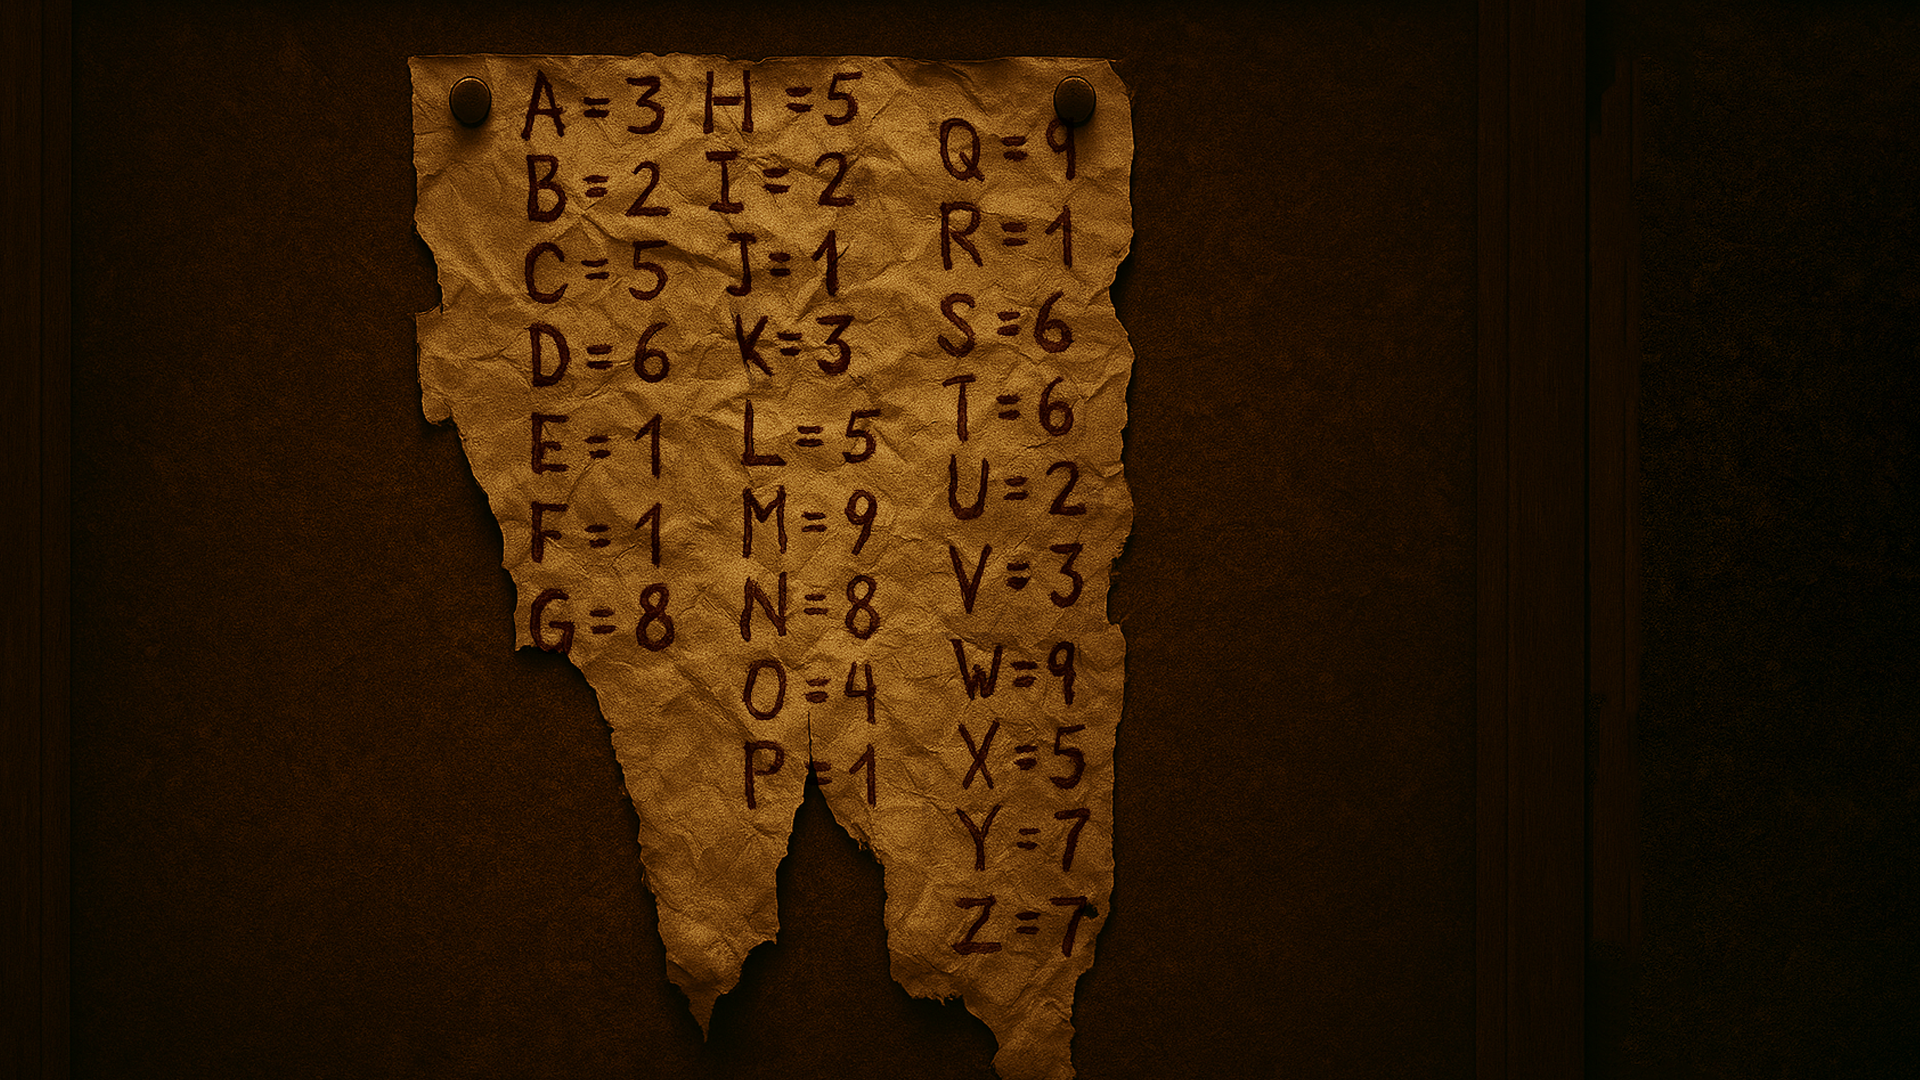 A = 3
B = 2
C = 5
D = 6
E = 1
F = 1
G = 8
H = 5
I = 2
J = 1
K = 3
L = 5
M = 9
N = 8
O = 4
P = 1
Q = 9
R = 1
S = 6
T = 6
U = 2
V = 3
W = 9
X = 5
Y = 7
Z = 7